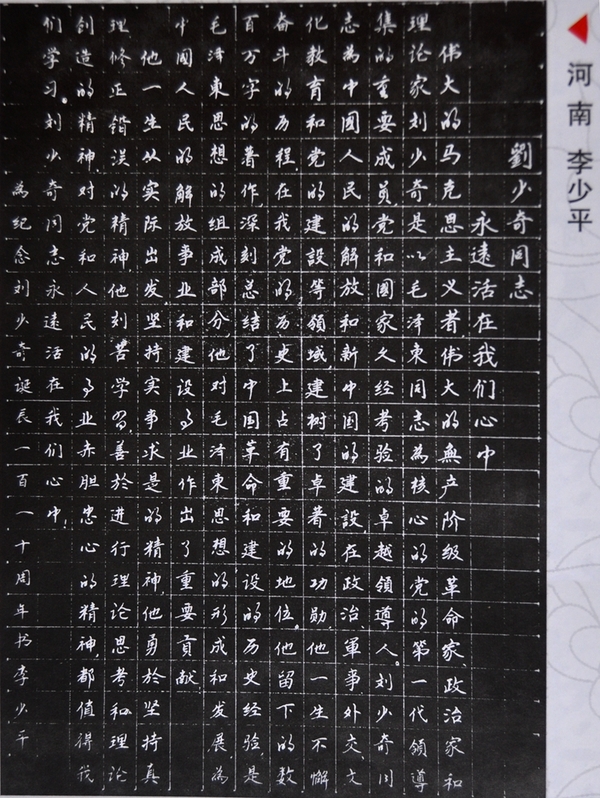 河南 李少平
劉少奇同志
永遠活在我们心中
伟大的马克思主义者,伟大的無产阶级革命家,政治家和
理论家刘少奇是以毛泽東同志為核心的党的第一代领導
集的重要成员,党和國家久经考验的卓越领導人。刘少奇同
志為中國人民的解放和新中国的建設,在政治軍事外交文
化教育和党的建設等领域建樹了卓著的功勋,他一生不懈
奋斗的历程,在我党的历史上占有重要的地位。他留下的数
百万字的著作,深刻总结了中国革命和建设的历史经验,是
毛泽東思想的组成部分,他对毛泽東思想的形成和发展,為
中國人民的解放事业和建设事业作出了重要贡献.
他一生从实际出发坚持实事求是的精神,他勇於坚持真
理修正错误的精神,他刻苦学習,善於进行理论思考和理论
创造的精神,对党和人民的事业赤胆忠心的精神,都值得我
们学习。刘少奇同志永遠活在我们心中.
為纪念刘少奇诞辰一百一十周年书李少平